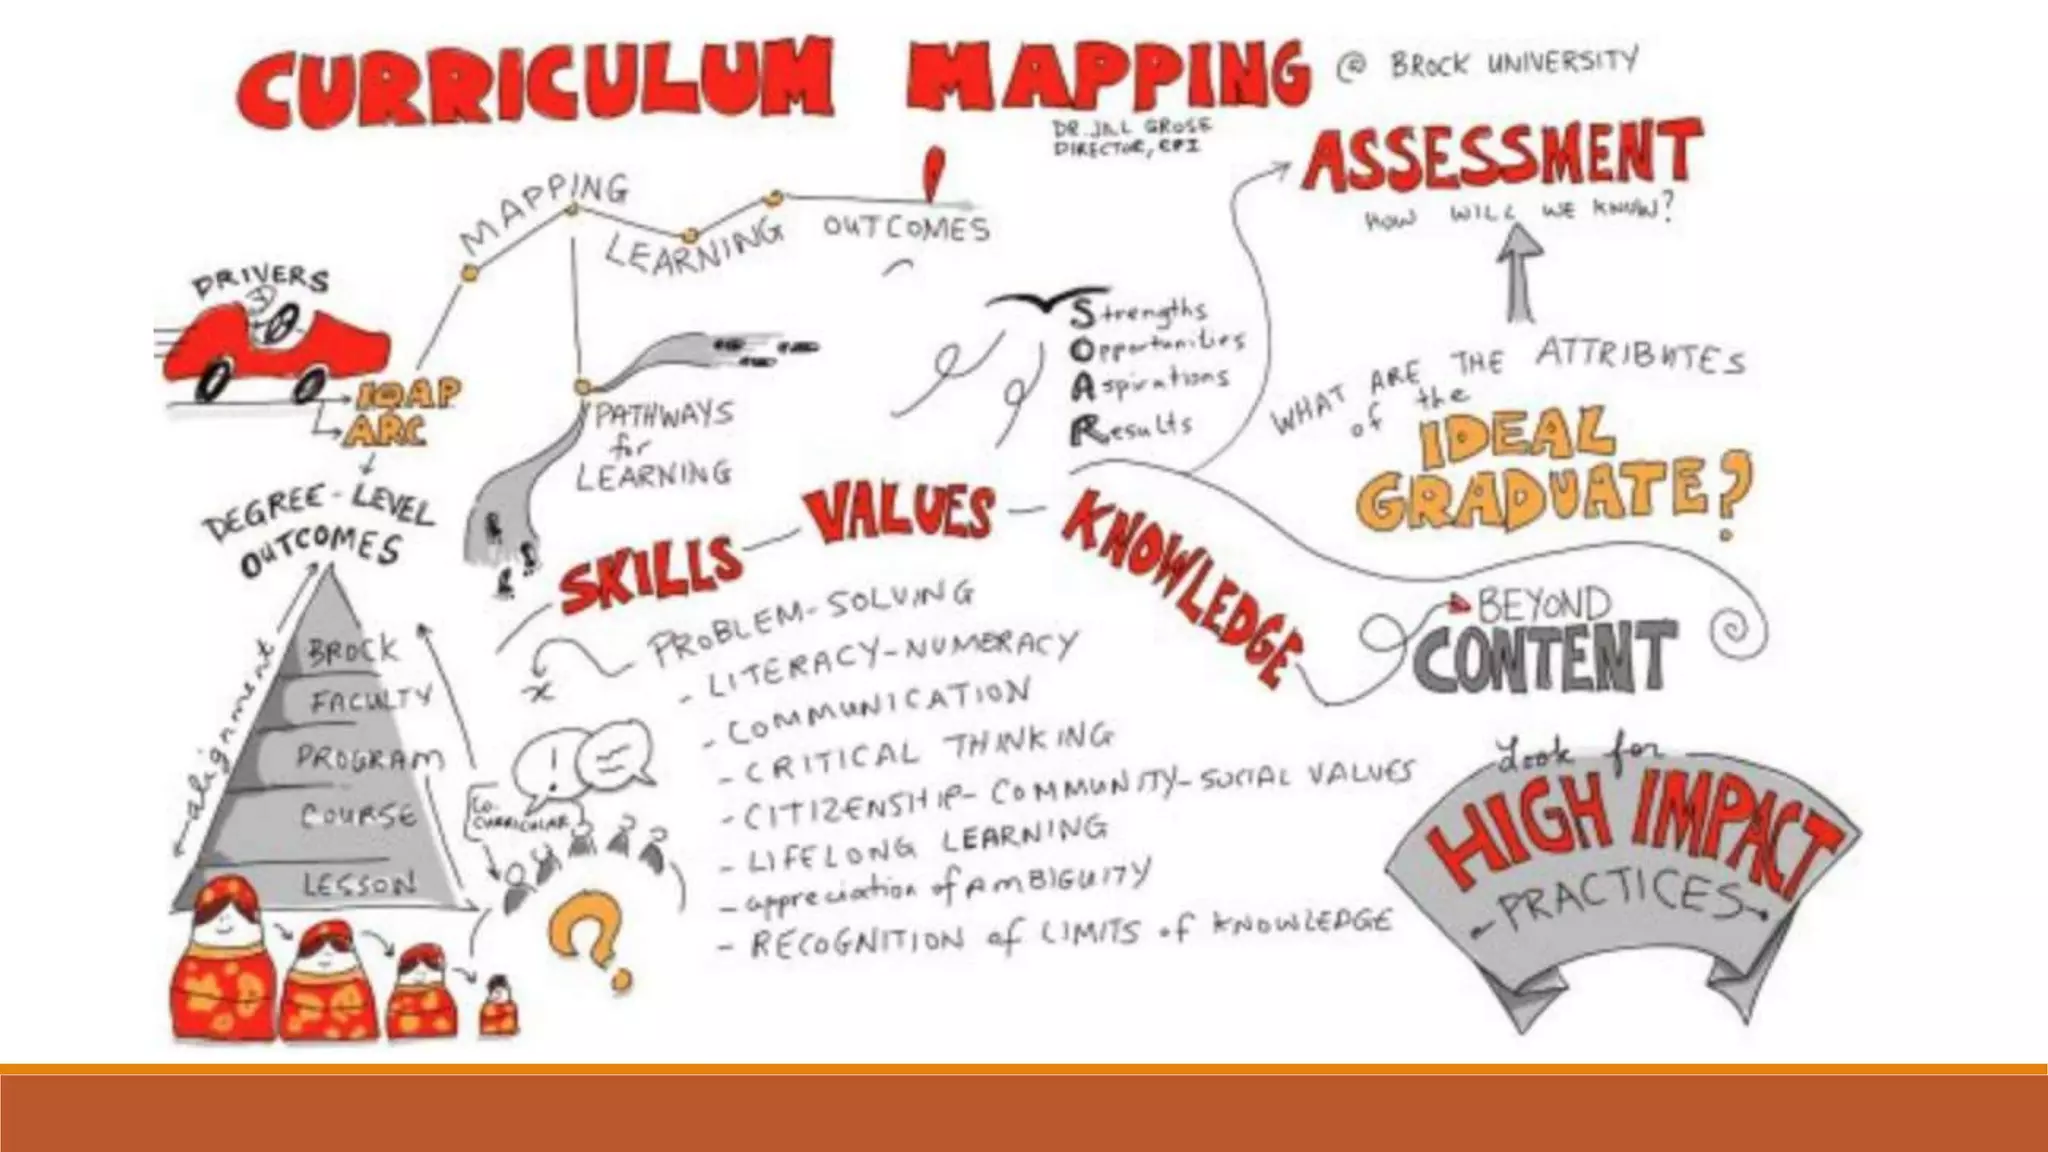 CURRICULUM MAPPING @ BROCK UNIVERSITY
DR. JILL GROSE
DIRECTOR, CPI
MAPPING LEARNING OUTCOMES
DRIVERS
IQAP
ARC
DEGREE-LEVEL
OUTCOMES
alignment
BROCK
FACULTY
PROGRAM
COURSE
LESSON
PATHWAYS
for
LEARNING
Strengths
Opportunities
Aspirations
Results
ASSESSMENT
HOW WILL WE KNOW?
WHAT ARE THE ATTRIBUTES
of the
IDEAL
GRADUATE?
SKILLS - VALUES - KNOWLEDGE
BEYOND
CONTENT
PROBLEM-SOLVING
x
- LITERACY-NUMERACY
- COMMUNICATION
- CRITICAL THINKING
- CITIZENSHIP- COMMUNITY- SOCIAL VALUES
- LIFELONG LEARNING
- appreciation of AMBIGUITY
- RECOGNITION of LIMITS of KNOWLEDGE
!
CO-
CURRICULAR
?
Look for
HIGH IMPACT
PRACTICES